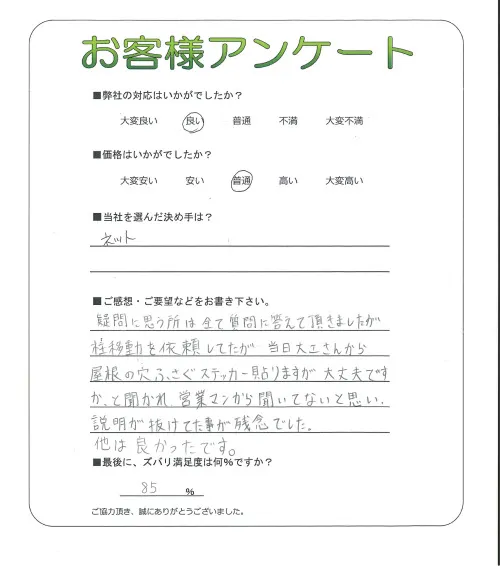 お客様アンケート
■弊社の対応はいかがでしたか？
大変良い 良い 普通 不満 大変不満
■価格はいかがでしたか？
大変安い 安い 普通 高い 大変高い
■当社を選んだ決め手は？
ネット
■ご感想・ご要望などをお書き下さい。
疑問に思う所は全て質問に答えて頂きましたが
桂移動を依頼してたが 当日大工さんから
屋根の穴ふさぐステッカー貼りますが 大丈夫です
か、と聞かれ、営業マンから聞いてないと思い、
説明が抜けてた事が残念でした。
他は良かったです。
■最後に、ズバリ満足度は何％ですか？
85 %
ご協力頂き、誠にありがとうございました。